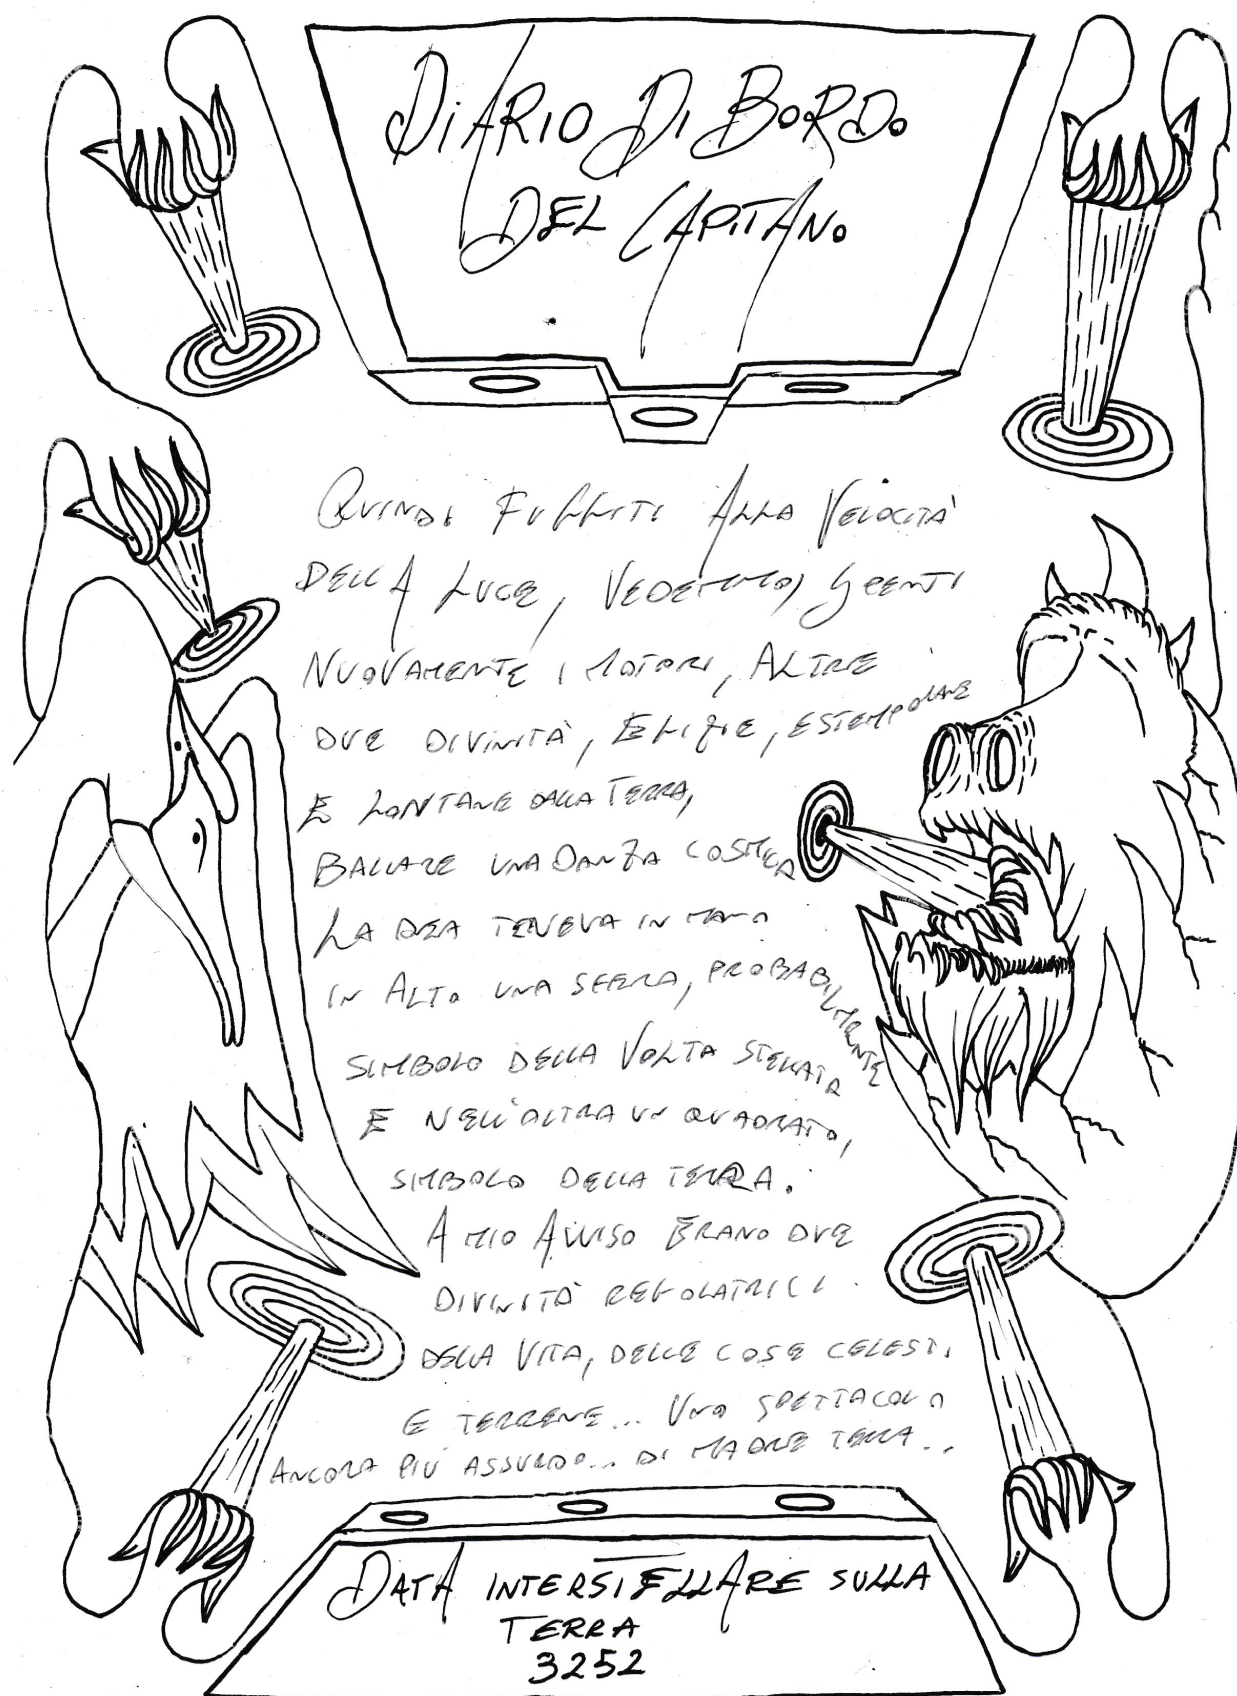 DIARIO DI BORDO
DEL CAPITANO
QUINDI FUGGITI ALLA VELOCITÀ
DELLA LUCE, VEDEMMO, SPENTI
NUOVAMENTE I MOTORI, ALTRE
DUE DIVINITÀ, EGIZIE, ESTEMPORANE
E LONTANE DALLA TERRA,
BALLARE UNA DANZA COSMICA
LA DEA TENEVA IN MANO
IN ALTO UNA SFERA, PROBABILMENTE
SIMBOLO DELLA VOLTA STELLATA
E NELL'ALTRA UN QUADRATO,
SIMBOLO DELLA TERRA.
A MIO AVVISO ERANO DUE
DIVINITÀ REGOLATRICI
DELLA VITA, DELLE COSE CELESTI
E TERRENE... UNO SPETTACOLO
ANCORA PIÙ ASSURDO... DI MADRE TERRA...
DATA INTERSTELLARE SULLA
TERRA
3252